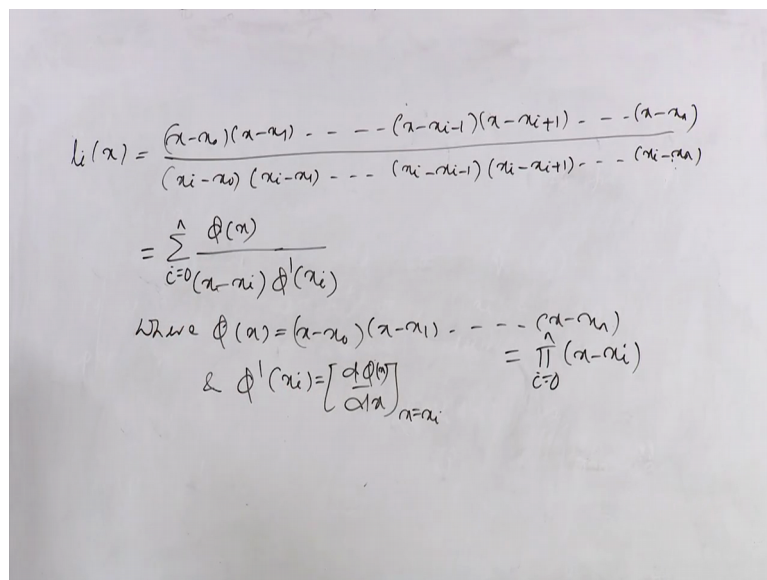 li(x) = (x-x₀)(x-x₁) - - - - (x-xi-1)(x-xi+1) - - - (x-xn) / (xi-x₀)(xi-x₁) - - - (xi-xi-1)(xi-xi+1) - - - (xi-xn)
= Σⁿᵢ₌₀ φ(x) / (x-xi) φ'(xi)
where φ(x) = (x-x₀)(x-x₁) - - - - - (x-xn)
= Πⁿᵢ₌₀ (x-xi)
& φ'(xi) = [dφ(x)/dx]ₓ₌ₓᵢ